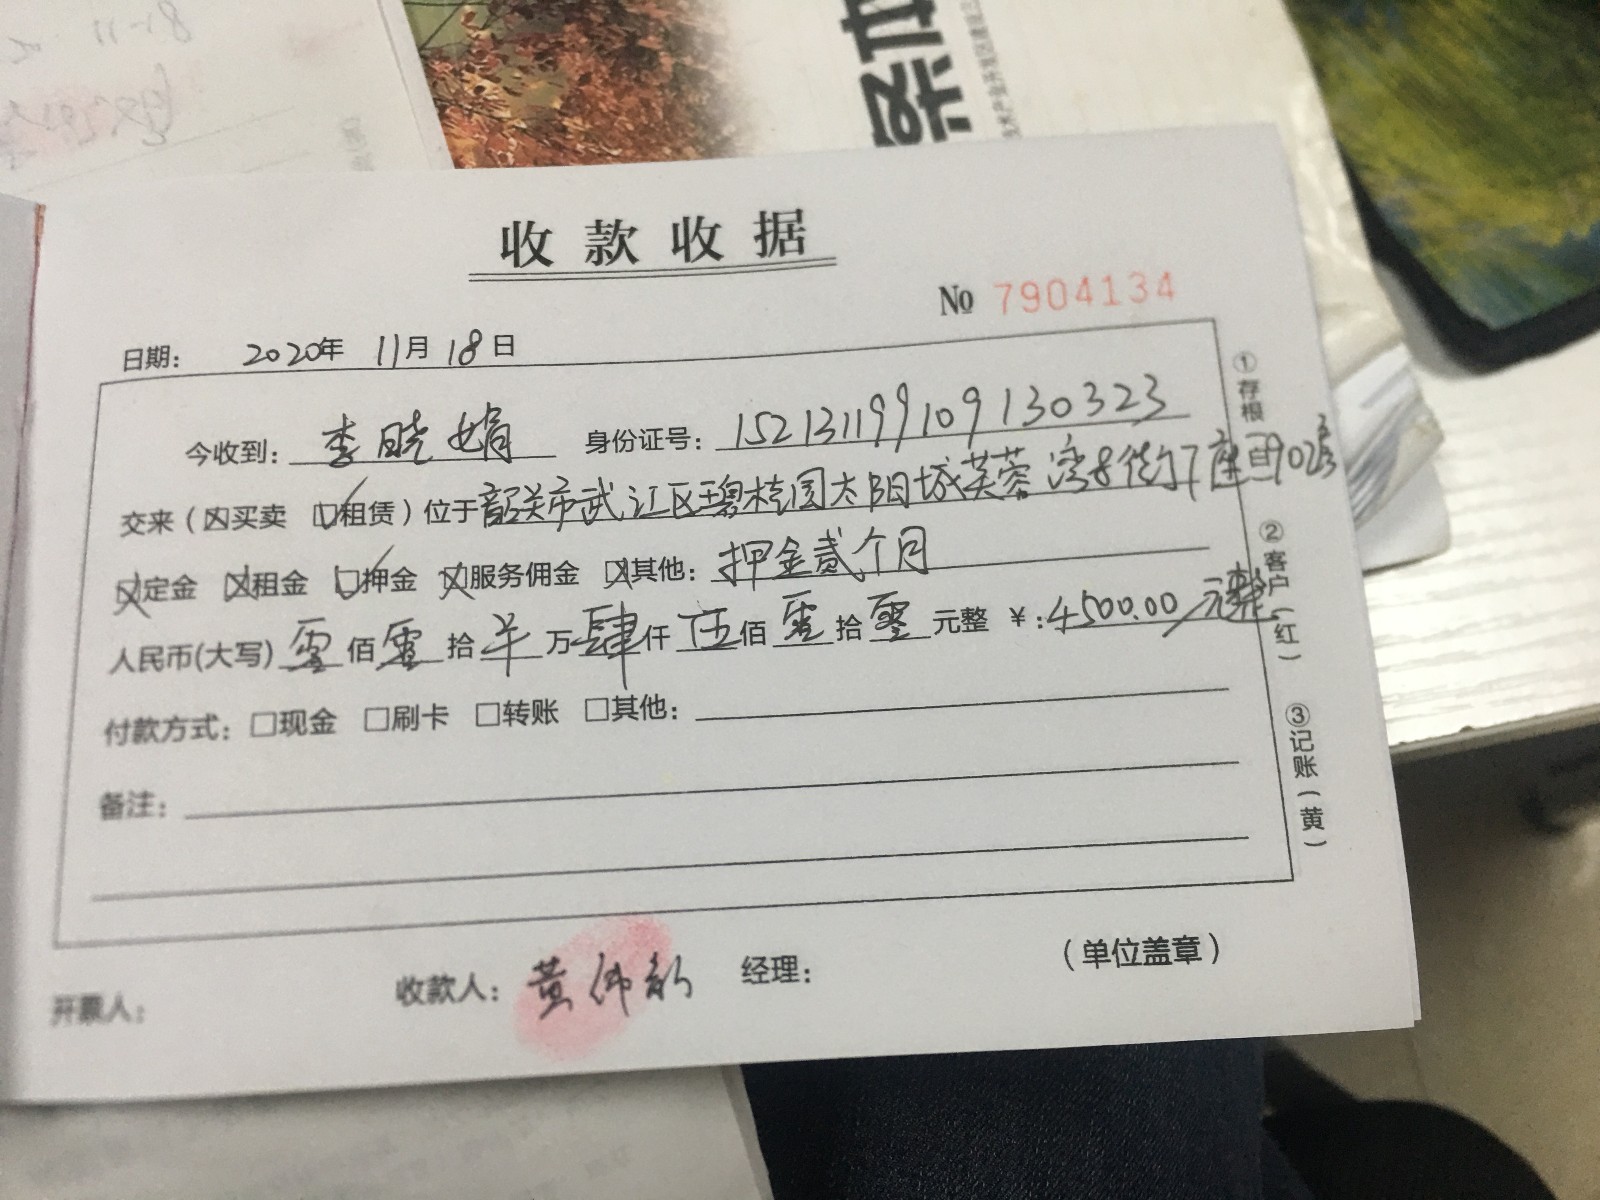 收款收据
№ 7904134
日期: 2020年 11月 18日
今收到: 李晓娟 身份证号: 152131199109130323
交来(☒买卖 ☑租赁)位于韶关市武江区碧桂园太阳城芙蓉湾8街7座902房
☒定金 ☒租金 ☑押金 ☒服务佣金 ☒其他: 押金贰个月
人民币(大写) 零佰零拾 万肆仟伍佰零拾零元整 ¥:4500.00元整
付款方式: □现金 □刷卡 □转账 □其他:
备注:
开票人: 收款人: 黄伟 经理: (单位盖章)
①存根 ②客户(红) ③记账(黄)